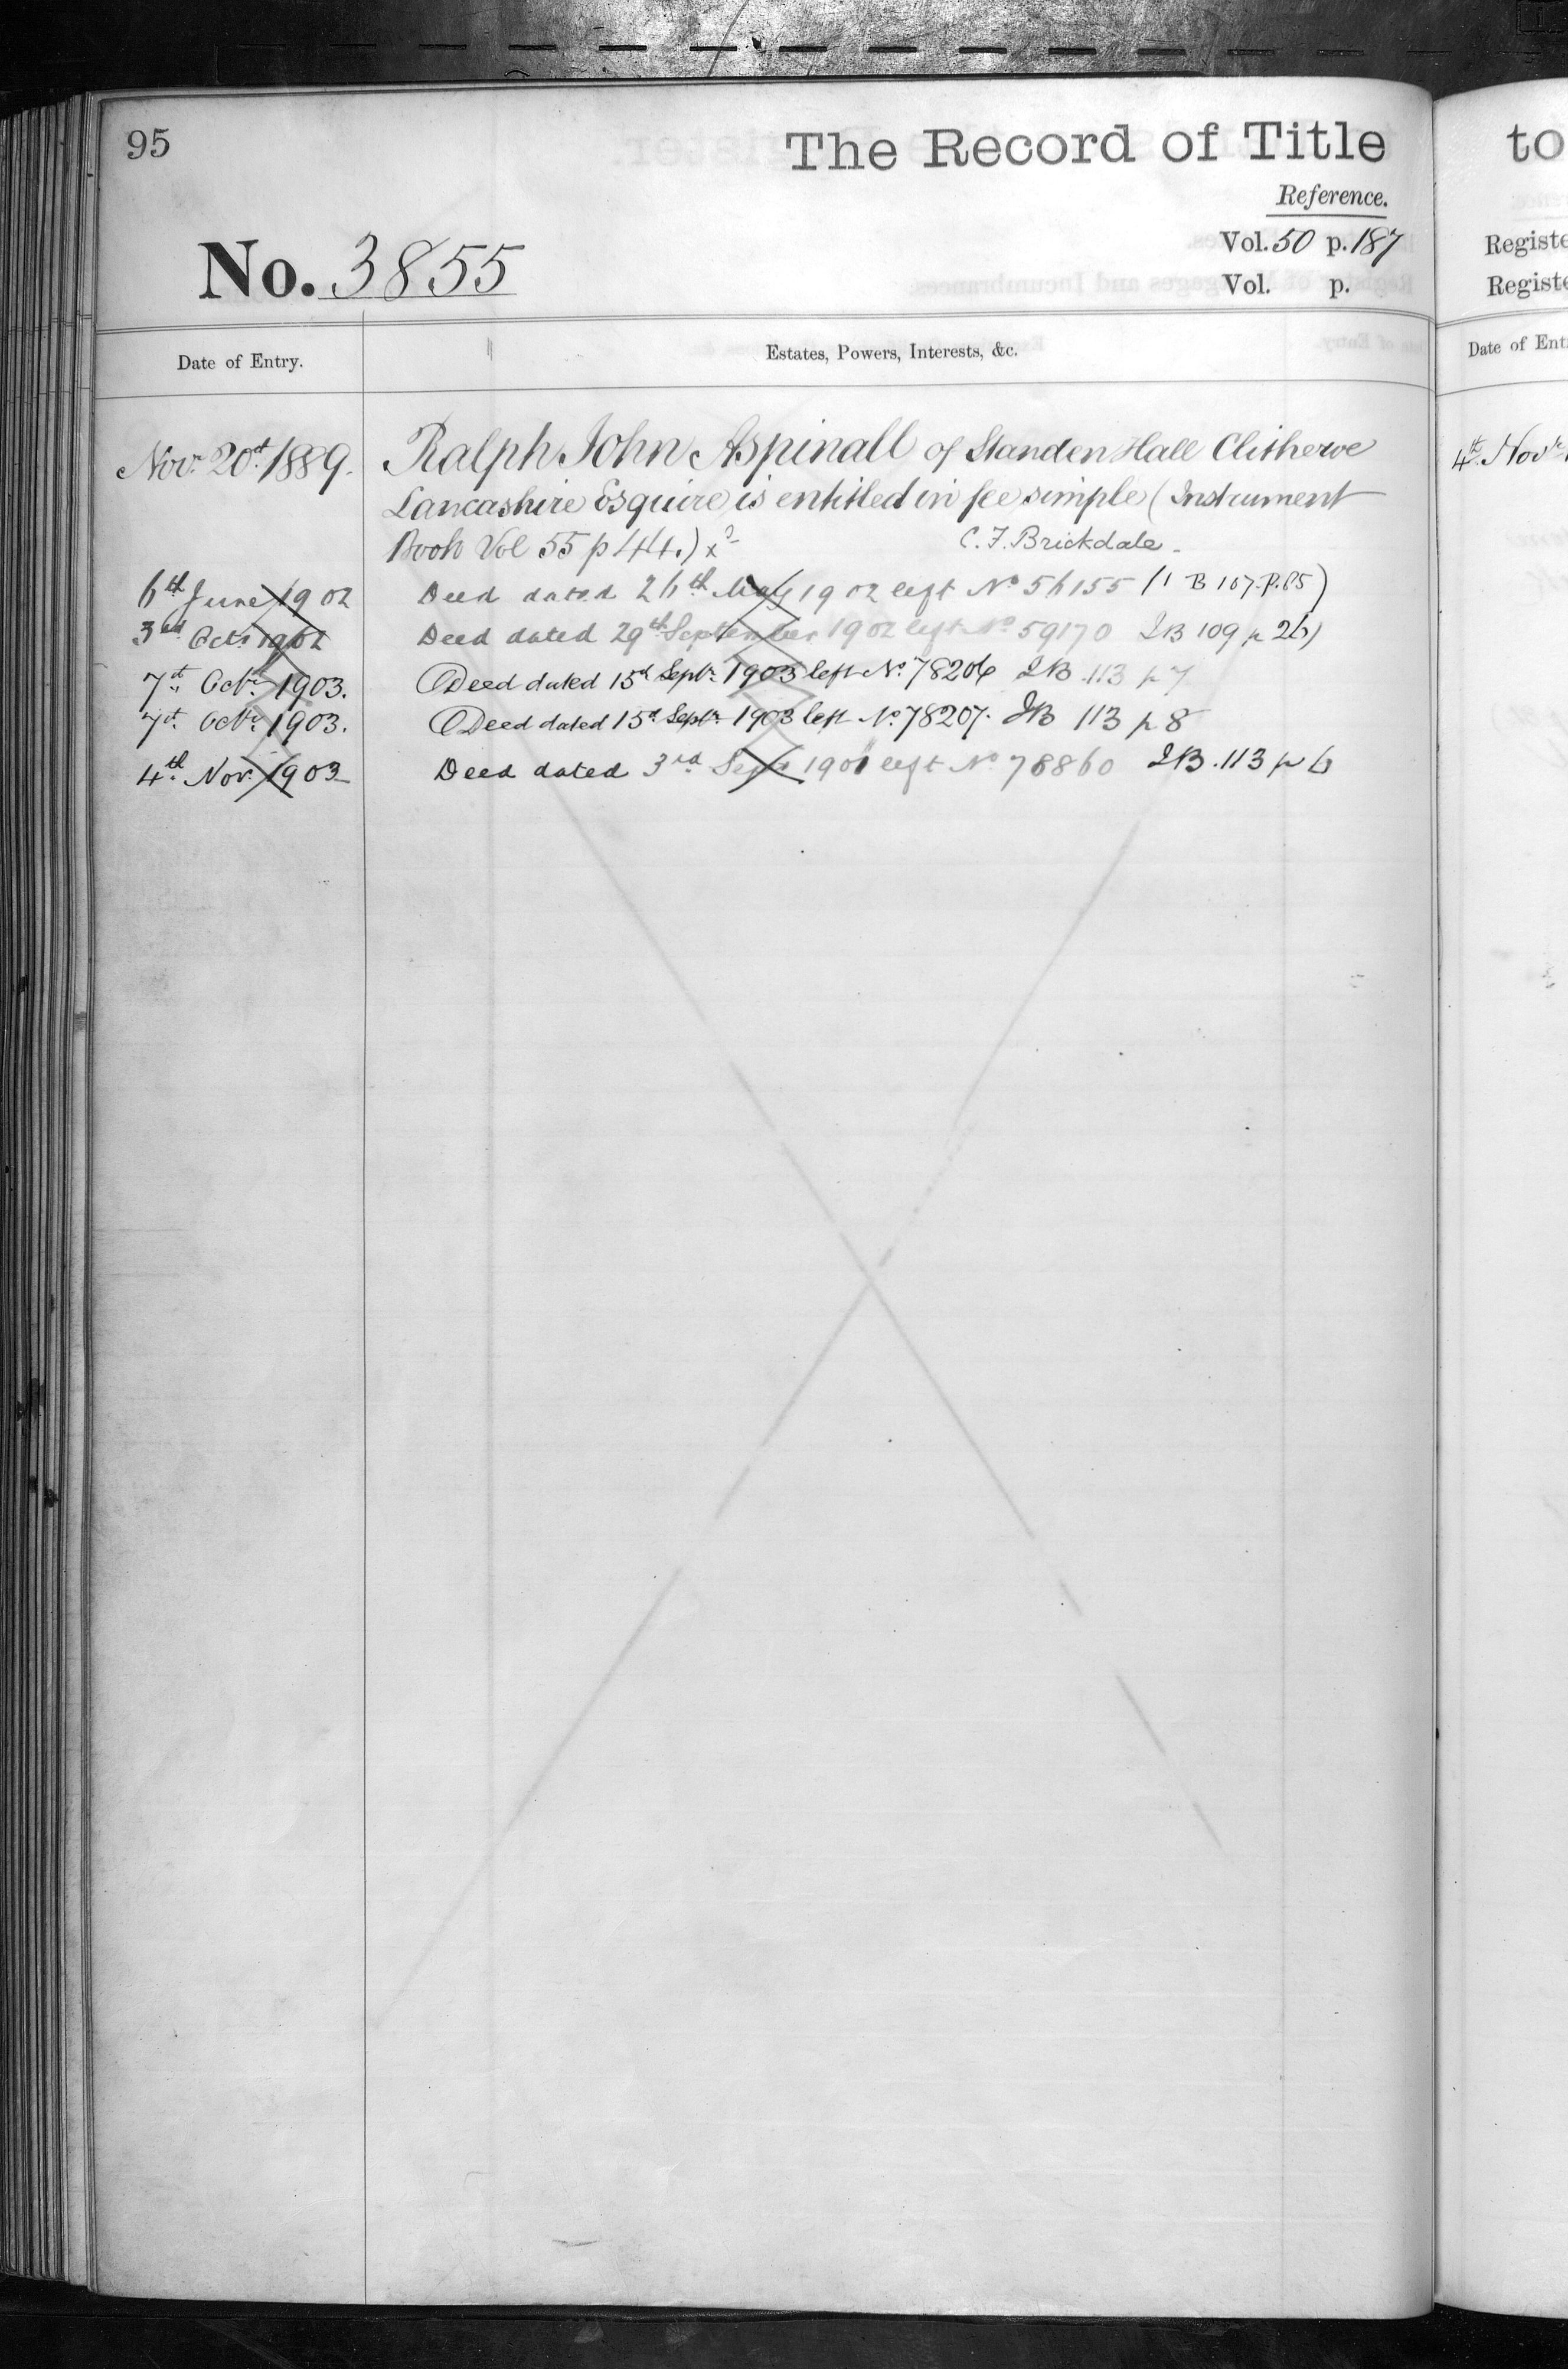 95
The Record of Title
Reference.
No. 3855
Vol. 50 p. 187
Vol. p.
Date of Entry.
Estates, Powers, Interests, &c.
Novr. 20th 1889. Ralph John Aspinall of Standen Hall Clitheroe
Lancashire Esquire is entitled in fee simple (Instrument
Book Vol 55 p 44.)
C. F. Brickdale
6th June 1902 Deed dated 26th May 1902 left No 56155 (I B 107. p. 85)
3rd Octr 1902 Deed dated 29th September 1902 left No 59170 IB 109 p 26)
7th Octr. 1903. Deed dated 15th Septr. 1903 left No. 78206 IB. 113 p 7
7th Octr. 1903. Deed dated 15th Septr. 1903 left No. 78207. IB 113 p 8
4th Nov. 1903 Deed dated 3rd Sept 1901 left No 78860 IB. 113 p 6
to
Registe
Registe
Date of Ent
4th Novr